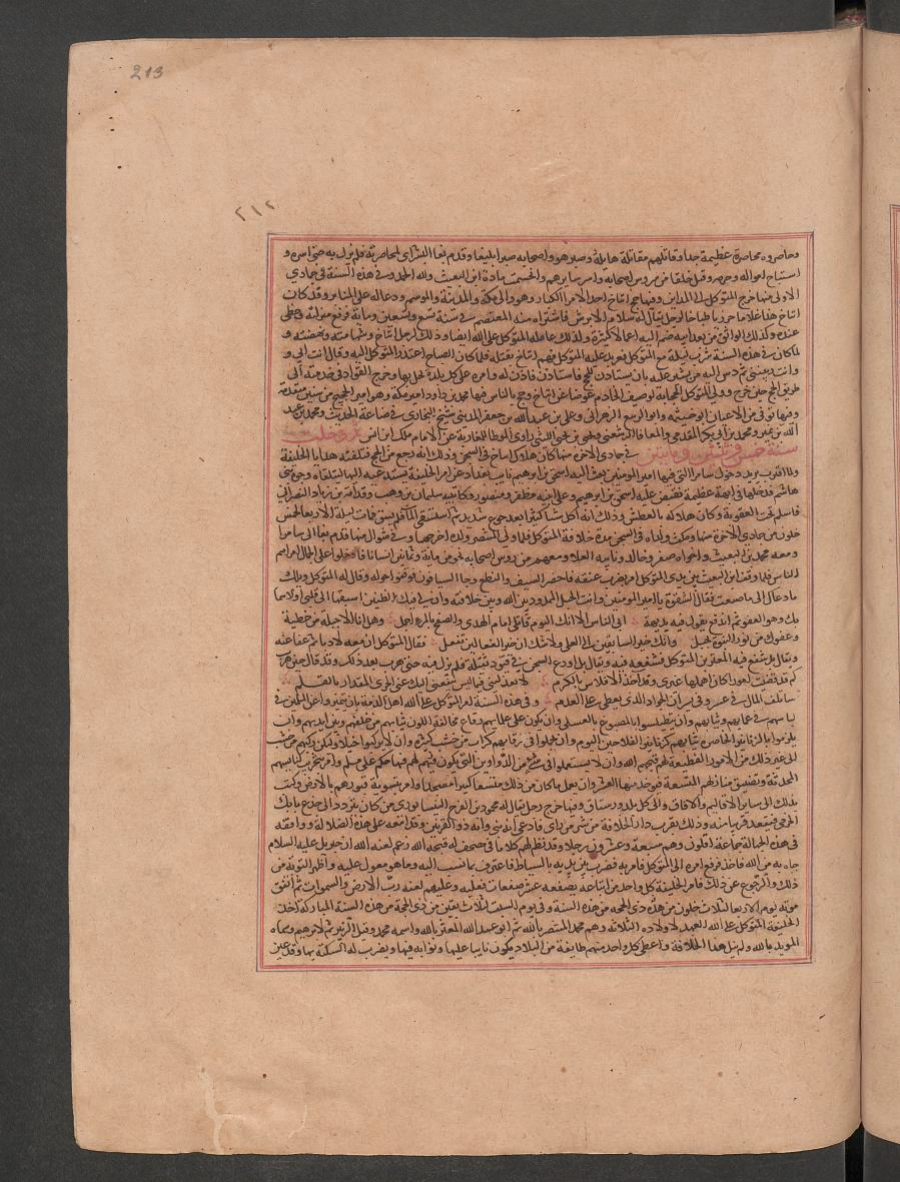 213
٢١٢
وحاصروه محاصرة عظيمة جدا وقاتلهم مقاتلة هايلة وصبر هو واصحابه صبرا بليغا وقدم بغا الشرابي لمحاصرته فلم يزل به حتى اسره و
استباح امواله وحرمه وقتل خلقا من روس اصحابه واسر سايرهم وانحسمت مادة ابن البعيث ولله الحمد وفي هذه السنة في جمادي
الاولى منها خرج المتوكل الى المداين وفيها حج ايتاخ احد الامرا الكبار وهو والي مكة والمدينة والموسم ودعا له على المنابر وقد كان
ايتاخ هذا غلاما خزريا طباخا لرجل يقال له سلام الابرش فاشتراه منه المعتصم في سنة تسع وتسعين وماية فرفع منزلته وحظي
عنده وكذلك الواثق من بعد ابيه ضم اليه اعمالا كثيرة ولذلك عامله المتوكل على الله ايضا وذلك لرجلة ايتاخ وشهامته ونهضته و
لما كان في هذه السنة شرب ليلة مع المتوكل فعربد عليه المتوكل فهم ايتاخ بقتله فلما كان الصباح اعتذر المتوكل اليه وقال انت ابي و
وانت ربيتني ثم دس اليه من يشير عليه بان يستاذن للحج فاستاذن فاذن له وامره على كل بلدة يحل بها وخرج القواد في خدمته الى
طريق الحج حين خرج وولى المتوكل الحجابة لوصيف الخادم عوضا عن ايتاخ وحج بالناس فيها محمد بن داود امير مكة وهو امير الحجيج من سنين متقدمة
وفيها توفي من الاعيان ابو خيثمة وابو الربيع الزهراني وعلي بن عبد الله بن جعفر المديني شيخ البخاري في صناعة الحديث ومحمد بن عبد
الله بن نمير ومحمد بن ابي بكر المقدمي والمعافا الرسعني ويحيى بن يحيى الليثي راوي الموطا للمغاربة عن الامام ملك ابن انس ثم دخلت
سنة خمس وثلثين ومايتين في جمادى الاخرة منها كان هلاك ايتاخ في السجن وذلك انه رجع من الحج فتلقته هدايا الخليفة
ولما اقترب يريد دخول سامرا التي فيها امير المومنين بعث اليه اسحق بن ابراهيم نايب بغداد عن امر الخليفة يستدعيه اليها ليتلقاه وجوه بني
هاشم فدخلها في ابهة عظيمة فقبض عليه اسحق بن ابرهيم وعلى ابنيه مظفر ومنصور وكاتبيه سليمان بن وهب وقدامة بن زياد النصراني
فاسلم تحت العقوبة وكان هلاكه بالعطش وذلك انه اكل شيا كثيرا بعد جوع شديد ثم استسقى الما فلم يسق فمات ليلة الاربعا لخمس
خلون من جمادي الاخرة منها ومكث ولداه في السجن مدة خلافة المتوكل فلما ولي المنتصر ولده اخرجهما وفي شوال منها قدم بغا الى سامرا
ومعه محمد بن البعيث واخواه صقر وخالد ونايبه العلا ومعهم من روس اصحابه نحو من ماية وثمانين انسانا فادخلوا على الجمال ليراهم
الناس فلما وقف ابن البعيث بين يدي المتوكل امر بضرب عنقه فاحضر السيف والنطع وجا السيافون فوقفوا حوله وقال له المتوكل ويلك
ما دعاك الى ما صنعت فقال الشقوة يا امير المومنين وانت الحبل الممدود بين الله وبين خلقه وان لي فيك لظنين اسبقهما الى قلبي اولاهما
بك وهو العفو ثم اندفع يقول فيه بديهة ابى الناس الا انك اليوم قاتلي امام الهدى والصفح بالمرء اجمل وهل انا الا جبلة من خطية
وعفوك من نور النبوة يجبل وانك خير السابقين الى العلى ولا شك ان خير الفعالين تفعل فقال المتوكل ان معه لادبا ثم عفا عنه
ويقال بل شفع فيه المعتز بن المتوكل فشفعه فيه ويقال بل اودع السجن في قيود ثقيلة فلم يزل فيه حتى هرب بعد ذلك وقد قال حين هرب
كم قد قضيت امورا كان اهملها غيري وقد اخذ الافلاس بالكرم لا تعذليني فيما ليس ينفعني اليك عني جرى المقدار بالقلم
ساتلف المال في عسر وفي يسر ان الجواد الذي يعطي على العدم وفي هذه السنة امر المتوكل على الله اهل الذمة بان يتميزوا عن المسلمين في
لباسهم في عمايمهم وثيابهم وان يتطيلسوا بالمصبوغ بالعسلي وان يكون على غلمانهم رقاع مخالفة للون ثيابهم من خلفهم وبين ايديهم وان
يلزموا بالزنانير الخاصرة ثيابهم كزنانير الفلاحين اليوم وان يحملوا في رقابهم كرات من خشب كثيرة وان لا يركبوا خيلا ولتكن ركبهم من خشب
الى غير ذلك من الامور الفظيعة لهم قبحهم الله وان لا يستعملوا في شي من الدواوين التي يكون فيها لهم فيها حكم على مسلم وامر بتخريب كنايسهم
المحدثة وبتضييق منازلهم المتسعة فيوخذ منها العشر وان يعمل ما كان من ذلك متسعا كبيرا مسجدا وامر بتسوية قبورهم بالارض وكتب
بذلك الى ساير الاقاليم والافاق والى كل بلد ورستاق وفيها خرج رجل يقال له محمود بن الفرج النيسابوري ممن كان يتردد الى جذع بابك
الخرمي فيقعد قريبا منه وذلك بقرب دار الخلافة من سر من راى فادعى انه نبي وانه ذو القرنين وقد اتبعه على هذه الضلالة ووافقه
في هذه الجهالة جماعة اقلون وهم سبعة وعشرون رجلا وقد نظم لهم كلاما في صحيفة له قبحه الله زعم لعنه الله ان جبريل عليه السلام
جاه به من الله فاخذ فرفع امره الى المتوكل فامر به فضرب بين يديه بالسياط فاعترف بما نسب اليه وما هو معول عليه واظهر التوبة من
ذلك والرجوع عن ذلك فامر الخليفة كل واحد من اتباعه يصفعه عشر صفعات فعليه وعليهم لعنة رب الارض والسموات ثم اتفق
موته يوم الاربعا لثلاث خلون من هذه ذي الحجة من هذه السنة وفي يوم السبت لثلاث بقين من ذي الحجة من هذه السنة المباركة اخذ
الخليفة المتوكل على الله العهد لاولاده الثلاثة وهم محمد المنتصر بالله ثم ابو عبد الله المعتز بالله واسمه محمد وقيل الزبير ثم لابرهيم وسماه
المويد بالله ولم يل هذا الخلافة واعطى كل واحد منهم طايفة من البلاد يكون نايبا عليها ونوابه فيها ويضرب له السكة بها وقد عين